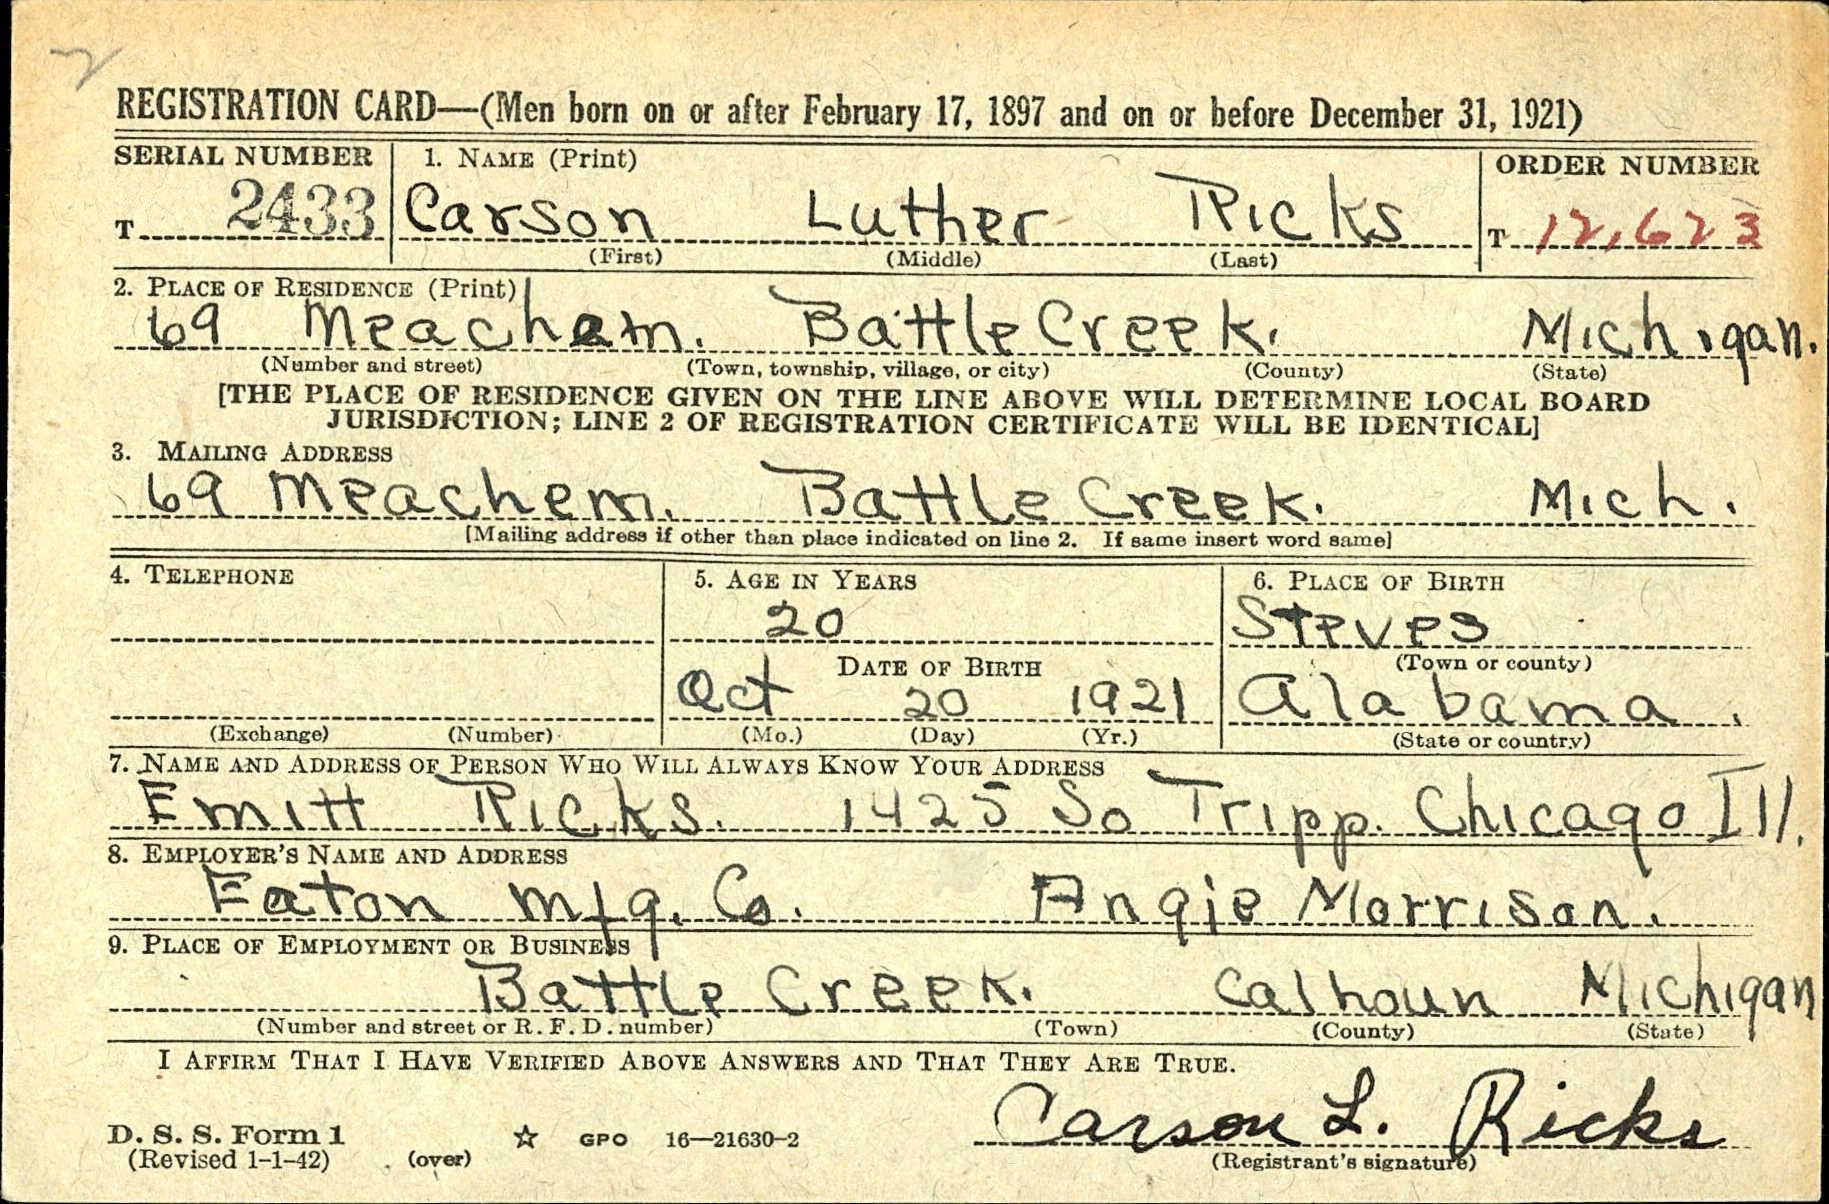 2
REGISTRATION CARD—(Men born on or after February 17, 1897 and on or before December 31, 1921)
SERIAL NUMBER 1. NAME (Print) ORDER NUMBER
T 2433 Carson Luther Ricks T 12,623
(First) (Middle) (Last)
2. PLACE OF RESIDENCE (Print)
69 Meacham. Battle Creek. Michigan.
(Number and street) (Town, township, village, or city) (County) (State)
[THE PLACE OF RESIDENCE GIVEN ON THE LINE ABOVE WILL DETERMINE LOCAL BOARD
JURISDICTION; LINE 2 OF REGISTRATION CERTIFICATE WILL BE IDENTICAL]
3. MAILING ADDRESS
69 Meachem. Battle Creek. Mich.
[Mailing address if other than place indicated on line 2. If same insert word same]
4. TELEPHONE 5. AGE IN YEARS 6. PLACE OF BIRTH
20 Steves
DATE OF BIRTH (Town or county)
Oct 20 1921 Alabama.
(Exchange) (Number) (Mo.) (Day) (Yr.) (State or country)
7. NAME AND ADDRESS OF PERSON WHO WILL ALWAYS KNOW YOUR ADDRESS
Emitt Ricks. 1425 So Tripp. Chicago Ill.
8. EMPLOYER'S NAME AND ADDRESS
Eaton Mfg. Co. Angie Morrison.
9. PLACE OF EMPLOYMENT OR BUSINESS
Battle Creek. Calhoun Michigan
(Number and street or R. F. D. number) (Town) (County) (State)
I AFFIRM THAT I HAVE VERIFIED ABOVE ANSWERS AND THAT THEY ARE TRUE.
Carson L. Ricks
D. S. S. Form 1 ☆ GPO 16—21630-2
(Revised 1-1-42) (over) (Registrant's signature)